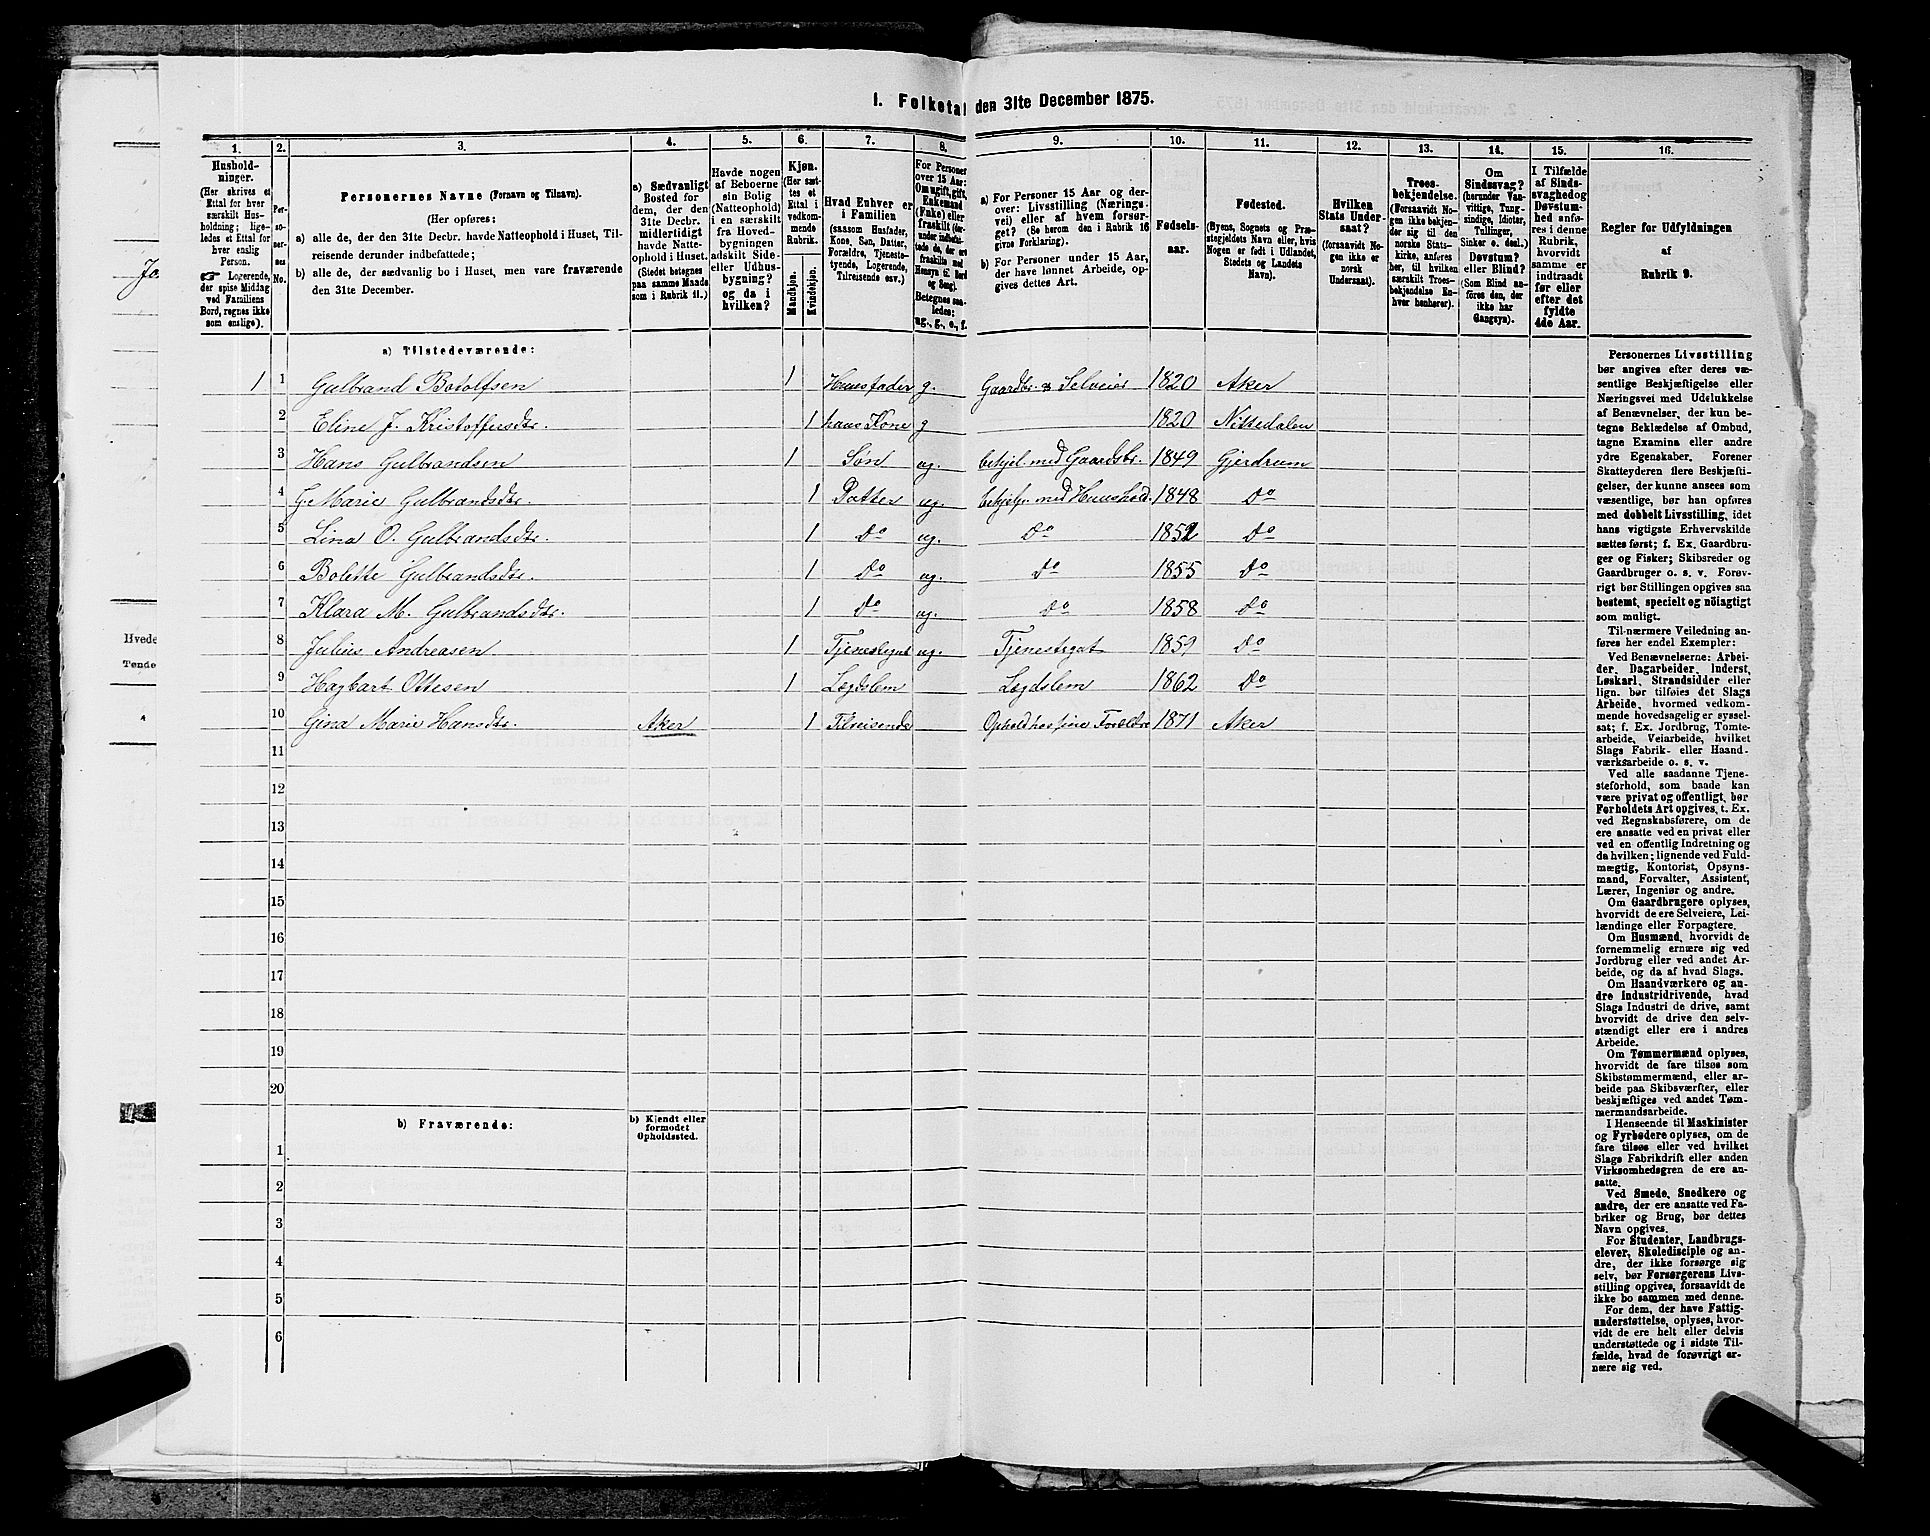 1. Folketal den 31te December 1875.
1. 2. 3. 4. 5. 6. 7. 8. 9. 10. 11. 12. 13. 14. 15. 16.
Husholdninger.
(Her skrives et Ettal for hver særskilt Husholdning; ligeledes et Ettal for hver enslig Person.
☞ Logerende, der spise Middag ved Familiens Bord, regnes ikke som enslige).
Personernes No.
Personernes Navne (Fornavn og Tilnavn).
(Her opføres:
a) alle de, der den 31te Decbr. havde Natteophold i Huset, Tilreisende derunder indbefattede;
b) alle de, der sædvanlig bo i Huset, men vare fraværende den 31te December.
a) Sædvanligt Bosted for dem, der den 31te Decbr. midlertidigt havde Natteophold i Huset.
(Stedet betegnes paa samme Maade som i Rubrik 11.)
Havde nogen af Beboerne sin Bolig (Natteophold) i en særskilt fra Hovedbygningen adskilt Side- eller Udhusbygning? og da i hvilken?
Kjøn.
(Her sættes et Ettal i vedkommende Rubrik.
Mandkjøn.
Kvindekjøn.
Hvad Enhver er i Familien
(saasom Husfader, Kone, Søn, Datter, Forældre, Tjenestetyende, Logerende, Tilreisende osv.)
For Personer over 15 Aar: Om ugift, gift, Enkemand (Enke) eller fraskilt
Betegnes saaledes: ug., g., e., f.
a) For Personer 15 Aar og derover: Livsstilling (Næringsvei) eller af hvem forsørget? (Se herom den i Rubrik 16 givne Forklaring).
b) For Personer under 15 Aar, der have lønnet Arbeide, opgives dettes Art.
Fødselsaar.
Fødested.
(Byens, Sognets og Præstegjeldets Navn eller, hvis Nogen er født i Udlandet, Stedets og Landets Navn).
Hvilken Stats Undersaat?
(forsaavidt Nogen ikke er norsk Undersaat).
Troesbekjendelse.
(Forsaavidt Nogen ikke bekjender sig til den norske Statskirke, anføres her, til hvilken særskilt Troesbekjendelse Enhver henhører).
Om Sindssvag? (herunder Vanvittige, Tungsindige, Idioter, Tullinger, Sinker o. desl.) Døvstum? eller Blind? (Som Blind anføres den, der ikke har Gangsyn).
I Tilfælde af Sindssvaghed og Døvstumhed anføres i denne Rubrik, hvorvidt samme er indtraadt før eller efter det fyldte 4de Aar.
Regler for Udfyldningen
af
Rubrik 9.
a) Tilstedeværende:
1 1 Gulbrand Botolfsen 1 Huusfader g. Gaardbr. & Selveier 1820 Aker
2 Eline J. Kristoffersdtr. 1 hans Kone g 1820 Nittedalen
3 Hans Gulbrandsen 1 Søn ug. behjel. med Gaardsbr. 1849 Gjerdrum
4 J. Marie Gulbrandsdtr. 1 Datter ug. behjelp. med Huushold. 1848 Do
5 Lina O. Gulbrandsdtr. 1 Do ug. Do 1852 Do
6 Bolette Gulbrandsdtr. 1 Do ug. Do 1855 Do
7 Klara M. Gulbrandsdtr. 1 Do ug. Do 1858 Do
8 Julius Andreasen 1 Tjenestgut ug. Tjenestegut 1859 Do
9 Hagbart Ottesen 1 Lægdslem Lægdslem 1862 Do
10 Gina Marie Hansdtr. Aker 1 Tilreisende Ophold hos sine Forældre 1871 Aker
11
12
13
14
15
16
17
18
19
20
b) Fraværende:
b) Kjendt eller formodet Opholdssted.
1
2
3
4
5
6
Personernes Livsstilling
bør angives efter deres væ-
sentlige Beskjæftigelse eller
Næringsvei med Udelukkelse
af Benævnelser, der kun be-
tegne Beklædelse af Ombud,
tagne Examina eller andre
ydre Egenskaber. Forener
Skatteyderen flere Beskjæfti-
gelser, der kunne ansees som
væsentlige, bør han opføres
med dobbelt Livsstilling, idet
hans vigtigste Erhvervskilde
sættes først; f. Ex. Gaardbru-
ger og Fisker; Skibsreder og
Gaardbruger o. s. v. Forøv-
rigt bør Stillingen opgives saa
bestemt, specielt og nöiagtigt
som muligt.
Til nærmere Veiledning an-
føres her endel Exempler:
Ved Benævnelserne: Arbei-
der, Dagarbeider, Inderst,
Løskarl, Strandsidder eller
lign. bør tilføies det Slags
Arbeide, hvormed vedkom-
mende hovedsagelig er syssel-
sat; f. Ex. Jordbrug, Tomte-
arbeide, Veiarbeide, hvilket
Slags Fabrik- eller Haand-
værksarbeide o. s. v.
Ved alle saadanne Tjene-
steforhold, som baade kan
være privat og offentligt, bør
Forholdets Art opgives, t. Ex.
ved Regnskabsførere, om de
ere ansatte ved en privat eller
ved en offentlig Indretning og
da hvilken; lignende ved Fuld-
mægtig, Kontorist, Opsyns-
mand, Forvalter, Assistent,
Lærer, Ingeniør og andre.
Om Gaardbrugere oplyses,
hvorvidt de ere Selveiere, Lei-
lændinge eller Forpagtere.
Om Husmænd, hvorvidt de
fornemmelig ernære sig ved
Jordbrug eller ved andet Ar-
beide, og da af hvad Slags.
Om Haandværkere og an-
dre Industridrivende, hvad
Slags Industri de drive, samt
hvorvidt de drive den selv-
stændigt eller ere i andres
Arbeide.
Om Tømmermænd oplyses,
hvorvidt de fare tilsøs som
Skibstømmermænd, eller ar-
beide paa Skibsværfter, eller
beskjæftiges ved andet Tøm-
mermandsarbeide.
I Henseende til Maskinister
og Fyrbødere oplyses, om de
fare tilsøs eller ved hvilket
Slags Fabrikdrift eller anden
Virksomhedsgren de ere an-
satte.
Ved Smede, Snedkere og
andre, der ere ansatte ved Fa-
briker og Brug, bør dettes
Navn opgives.
For Studenter, Landbrugs-
elever, Skoledisciple og an-
dre, der ikke forsørge sig
selv, bør Forsørgerens Livs-
stilling opgives, forsaavidt de
ikke bo sammen med denne.
For dem, der have Fattig-
understøttelse, oplyses, hvor-
vidt de ere helt eller delvis
understøttede og i sidste Til-
fælde, hvad de forøvrigt er-
nære sig ved.
Hvede
Tønde